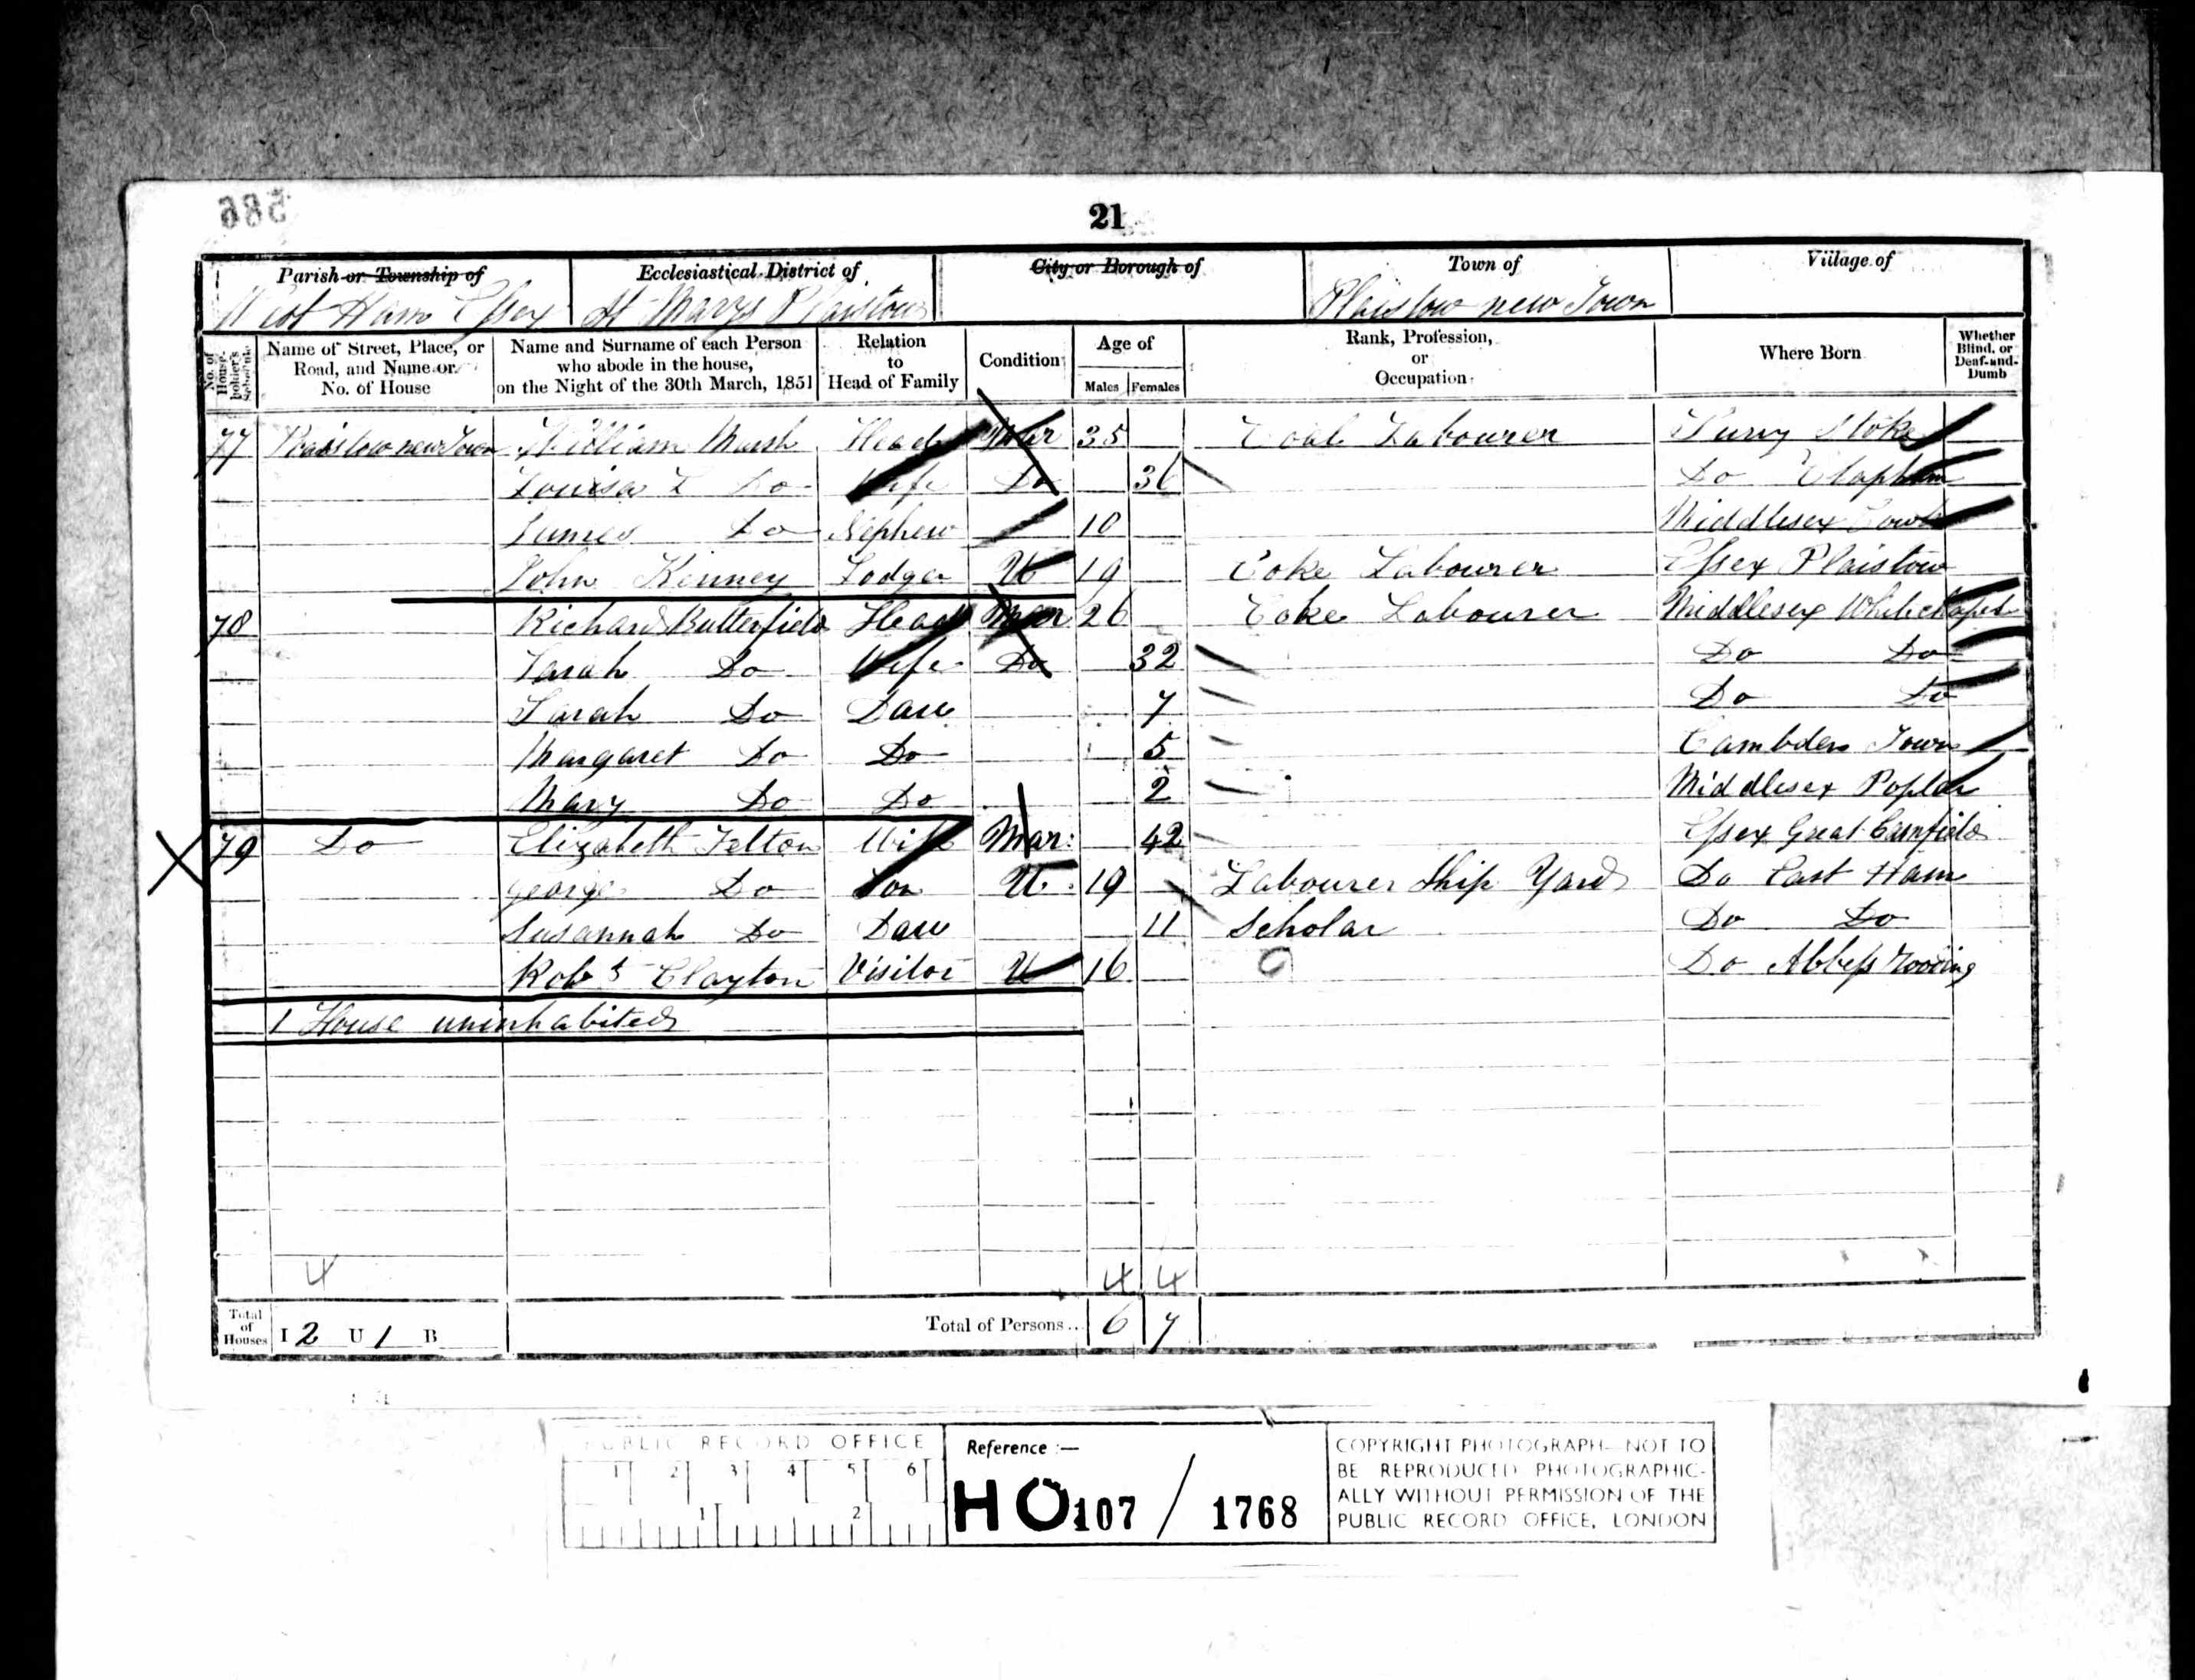 586
21
Parish or Township of Ecclesiastical District of City or Borough of Town of Village of
West Ham Essex St Marys Plaistow Plaistow new Town
No. of House-holder's Schedule Name of Street, Place, or Road, and Name or No. of House Name and Surname of each Person who abode in the house, on the Night of the 30th March, 1851 Relation to Head of Family Condition Age of Males Females Rank, Profession, or Occupation Where Born Whether Blind, or Deaf-and-Dumb
77 Plaistow new Town William Marsh Head Mar 35 Coal Labourer Surry Stoke
Louisa L Do Wife Do 36 Do Clapham
James Do Nephew 10 Middlesex
John Kenney Lodger U 19 Coke Labourer Essex Plaistow
78 Richard Butterfield Head Mar 26 Coke Labourer Middlesex Whitechapel
Sarah Do Wife Do 32 Do Do
Sarah Do Dau 7 Do Do
Margaret Do Do 5 Cambden Town
Mary Do Do 2 Middlesex Poplar
79 Do Elizabeth Felton Wife Mar: 42 Essex Great Canfield
George Do Son U 19 Labourer Ship Yard Do East Ham
Susannah Do Dau 11 Scholar Do Do
Robt Clayton Visitor U 16 Do Abbess Rooting
1 House uninhabited
4 4 4
Total of Houses I 2 U 1 B Total of Persons... 6 7
PUBLIC RECORD OFFICE
1 2 3 4 5 6
1 2
Reference :—
HO 107 / 1768
COPYRIGHT PHOTOGRAPH—NOT TO
BE REPRODUCED PHOTOGRAPHIC-
ALLY WITHOUT PERMISSION OF THE
PUBLIC RECORD OFFICE, LONDON